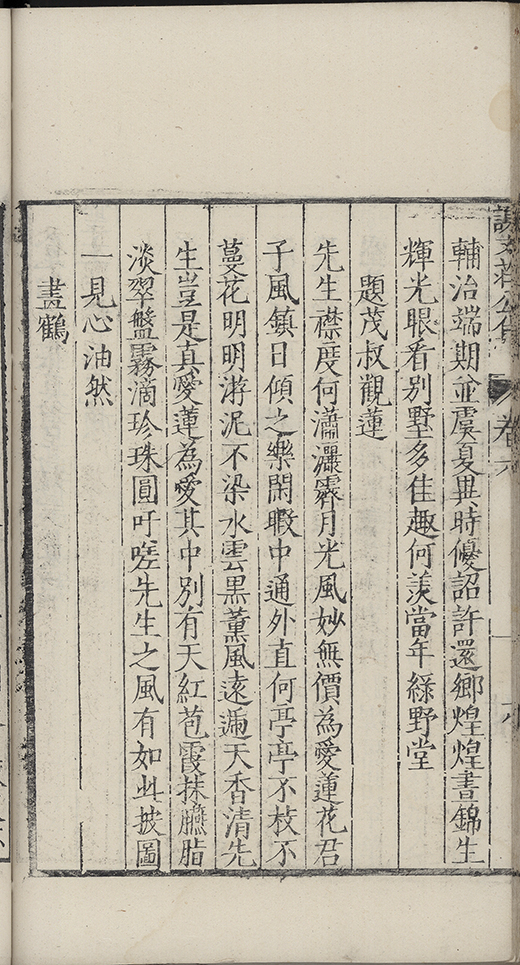 輔治端期並虞夏異時優詔許還鄉煌煌書錦生
輝光眼看別墅多佳趣何羨當年綠野堂
題茂叔觀蓮
先生襟度何瀟灑霽月光風妙無價為愛蓮花君
子風鎮日傾之樂閑暇中通外直何亭亭不枝不
蔓花明明淤泥不染水雲黑薰風遠遞天香清先
生豈是真愛蓮為愛其中別有天紅苞霞抹臙脂
淡翠盤露滴珍珠圓吁嗟先生之風有如此披圖
一見心油然
畫鶴